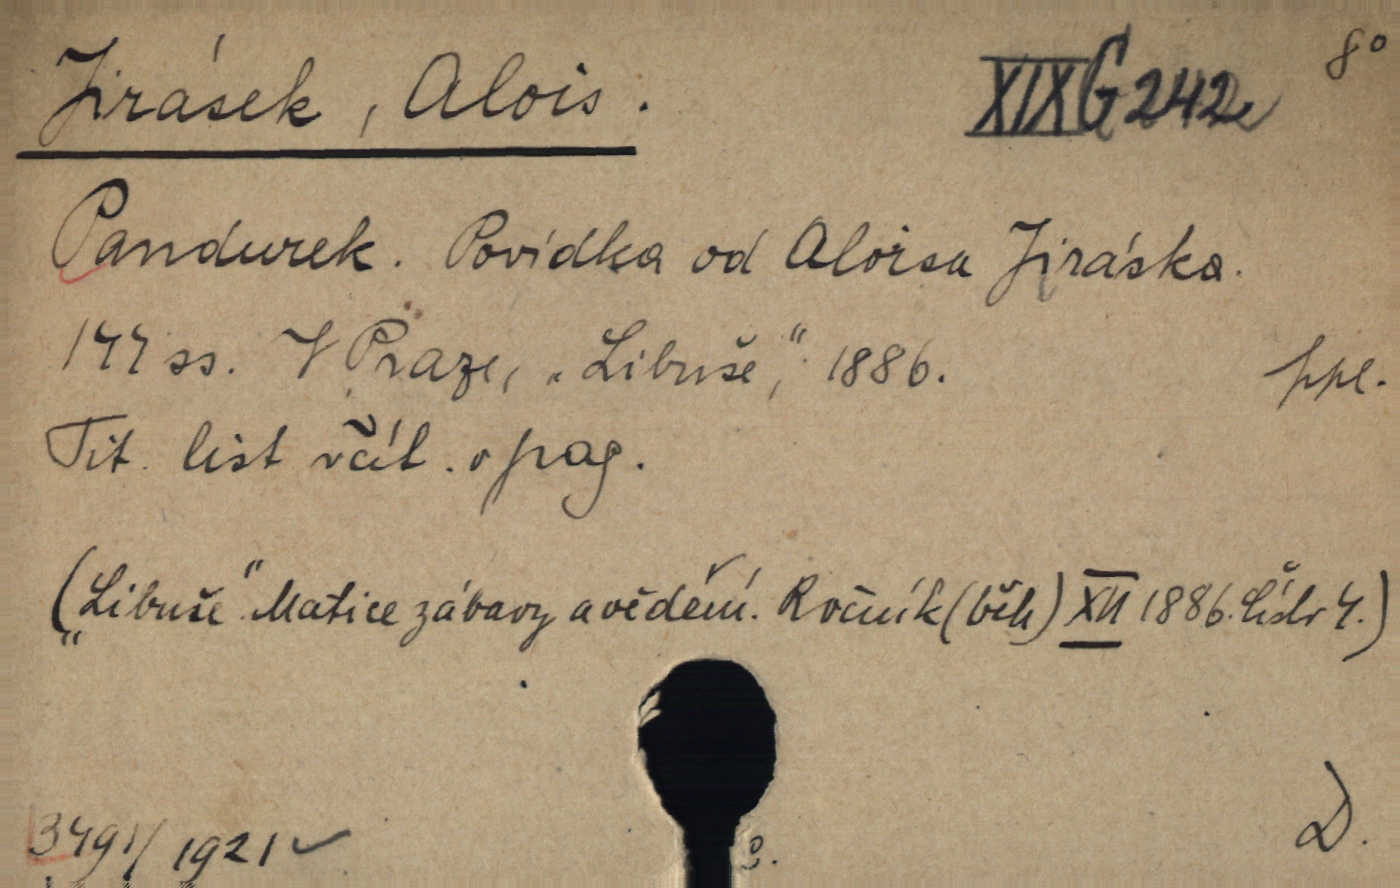 Jirásek, Alois.
XIX G 242
8°
Pandurek. Povídka od Aloisa Jiráska.
144 ss. V Praze, „Libuše“, 1886.
ppl.
Tit. list včít. v pag.
(„Libuše“ Matice zábavy a vědění. Ročník (běh) XVI 1886. číslo 4.)
3491/1921 ✓
D.